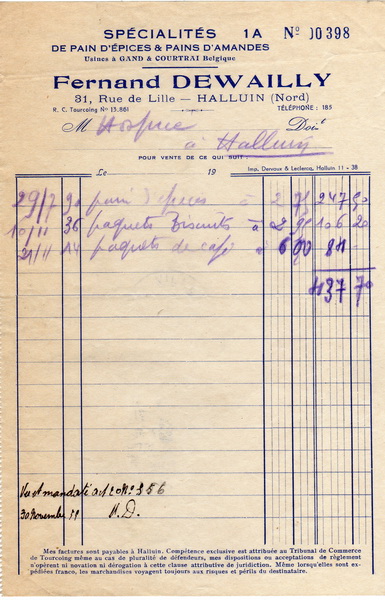 SPÉCIALITÉS 1A Nº 00398
DE PAIN D'ÉPICES & PAINS D'AMANDES
Usines à GAND & COURTRAI Belgique
Fernand DEWAILLY
31, Rue de Lille — HALLUIN (Nord)
R. C. Tourcoing Nº 15.881 TÉLÉPHONE : 185
M Hospice Doit
à Halluin
POUR VENTE DE CE QUI SUIT
Le 19 Imp. Devaux & Leclercq, Halluin 11 - 38
29/7 90 pain d'épices à 2 75 247 50
10/11 36 paquets Biscuits à 2 95 106 20
21/11 14 paquets de café à 6 00 84 —
437 70
Vu et mandaté Nº 356
30 Novembre
Mes factures sont payables à Halluin. Compétence exclusive est attribuée au Tribunal de Commerce
de Tourcoing même au cas de pluralité de défendeurs, mes dispositions ou acceptations de règlement
n'opèrent ni novation ni dérogation à cette clause attributive de juridiction. Même lorsqu'elles sont ex-
pédiées franco, les marchandises voyagent toujours aux risques et périls du destinataire.